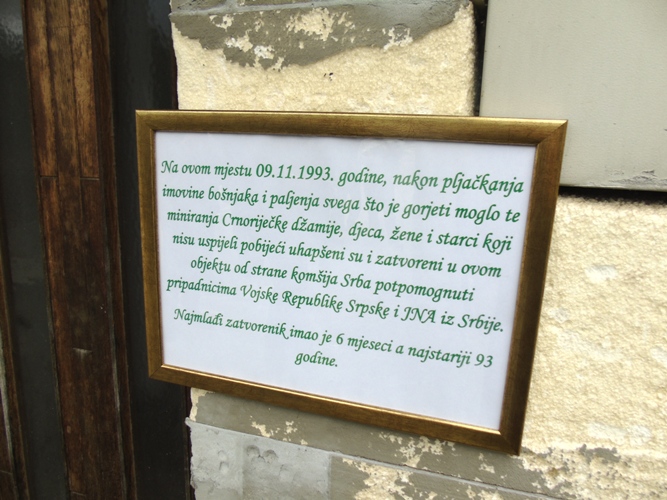 Na ovom mjestu 09.11.1993. godine, nakon pljačkanja
imovine bošnjaka i paljenja svega što je gorjeti moglo te
miniranja Crnoriječke džamije, djeca, žene i starci koji
nisu uspijeli pobijeći uhapšeni su i zatvoreni u ovom
objektu od strane komšija Srba potpomgnuti
pripadnicima Vojske Republike Srpske i JNA iz Srbije.
Najmlađi zatvorenik imao je 6 mjeseci a najstariji 93
godine.